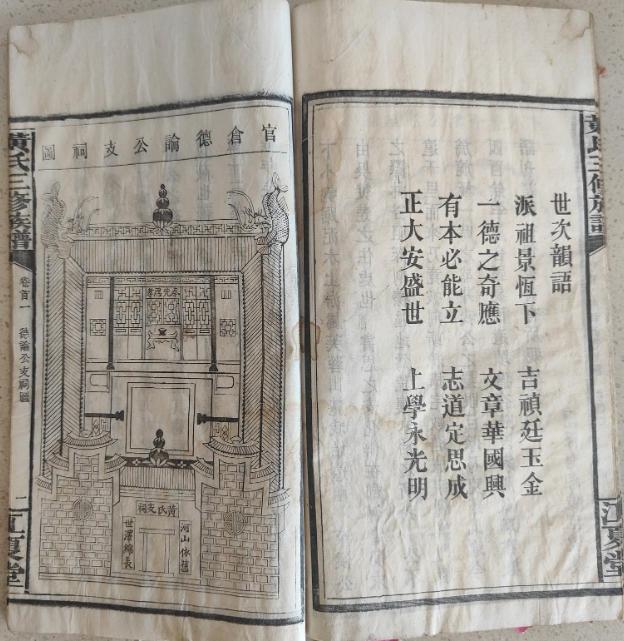 黃氏三修族譜
江夏堂
世次韻語
派祖景恆下 吉禎廷玉金
一德之奇應 文章華國興
有本必能立 志道定思成
正大安盛世 上學永光明
官倉德論公支祠圖
黃氏支祠
河山依舊
世澤綿長
黃氏三修族譜
卷首一 德論公支祠圖
一
江夏堂